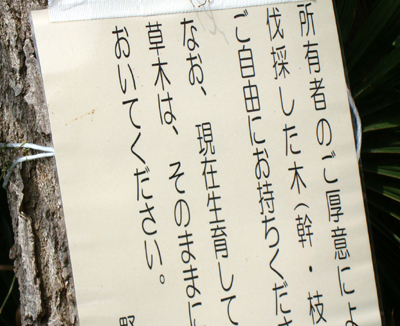 所有者のご厚意によ
伐採した木(幹・枝
ご自由にお持ちくださ
なお、現在生育して
草木は、そのままに
おいてください。
野